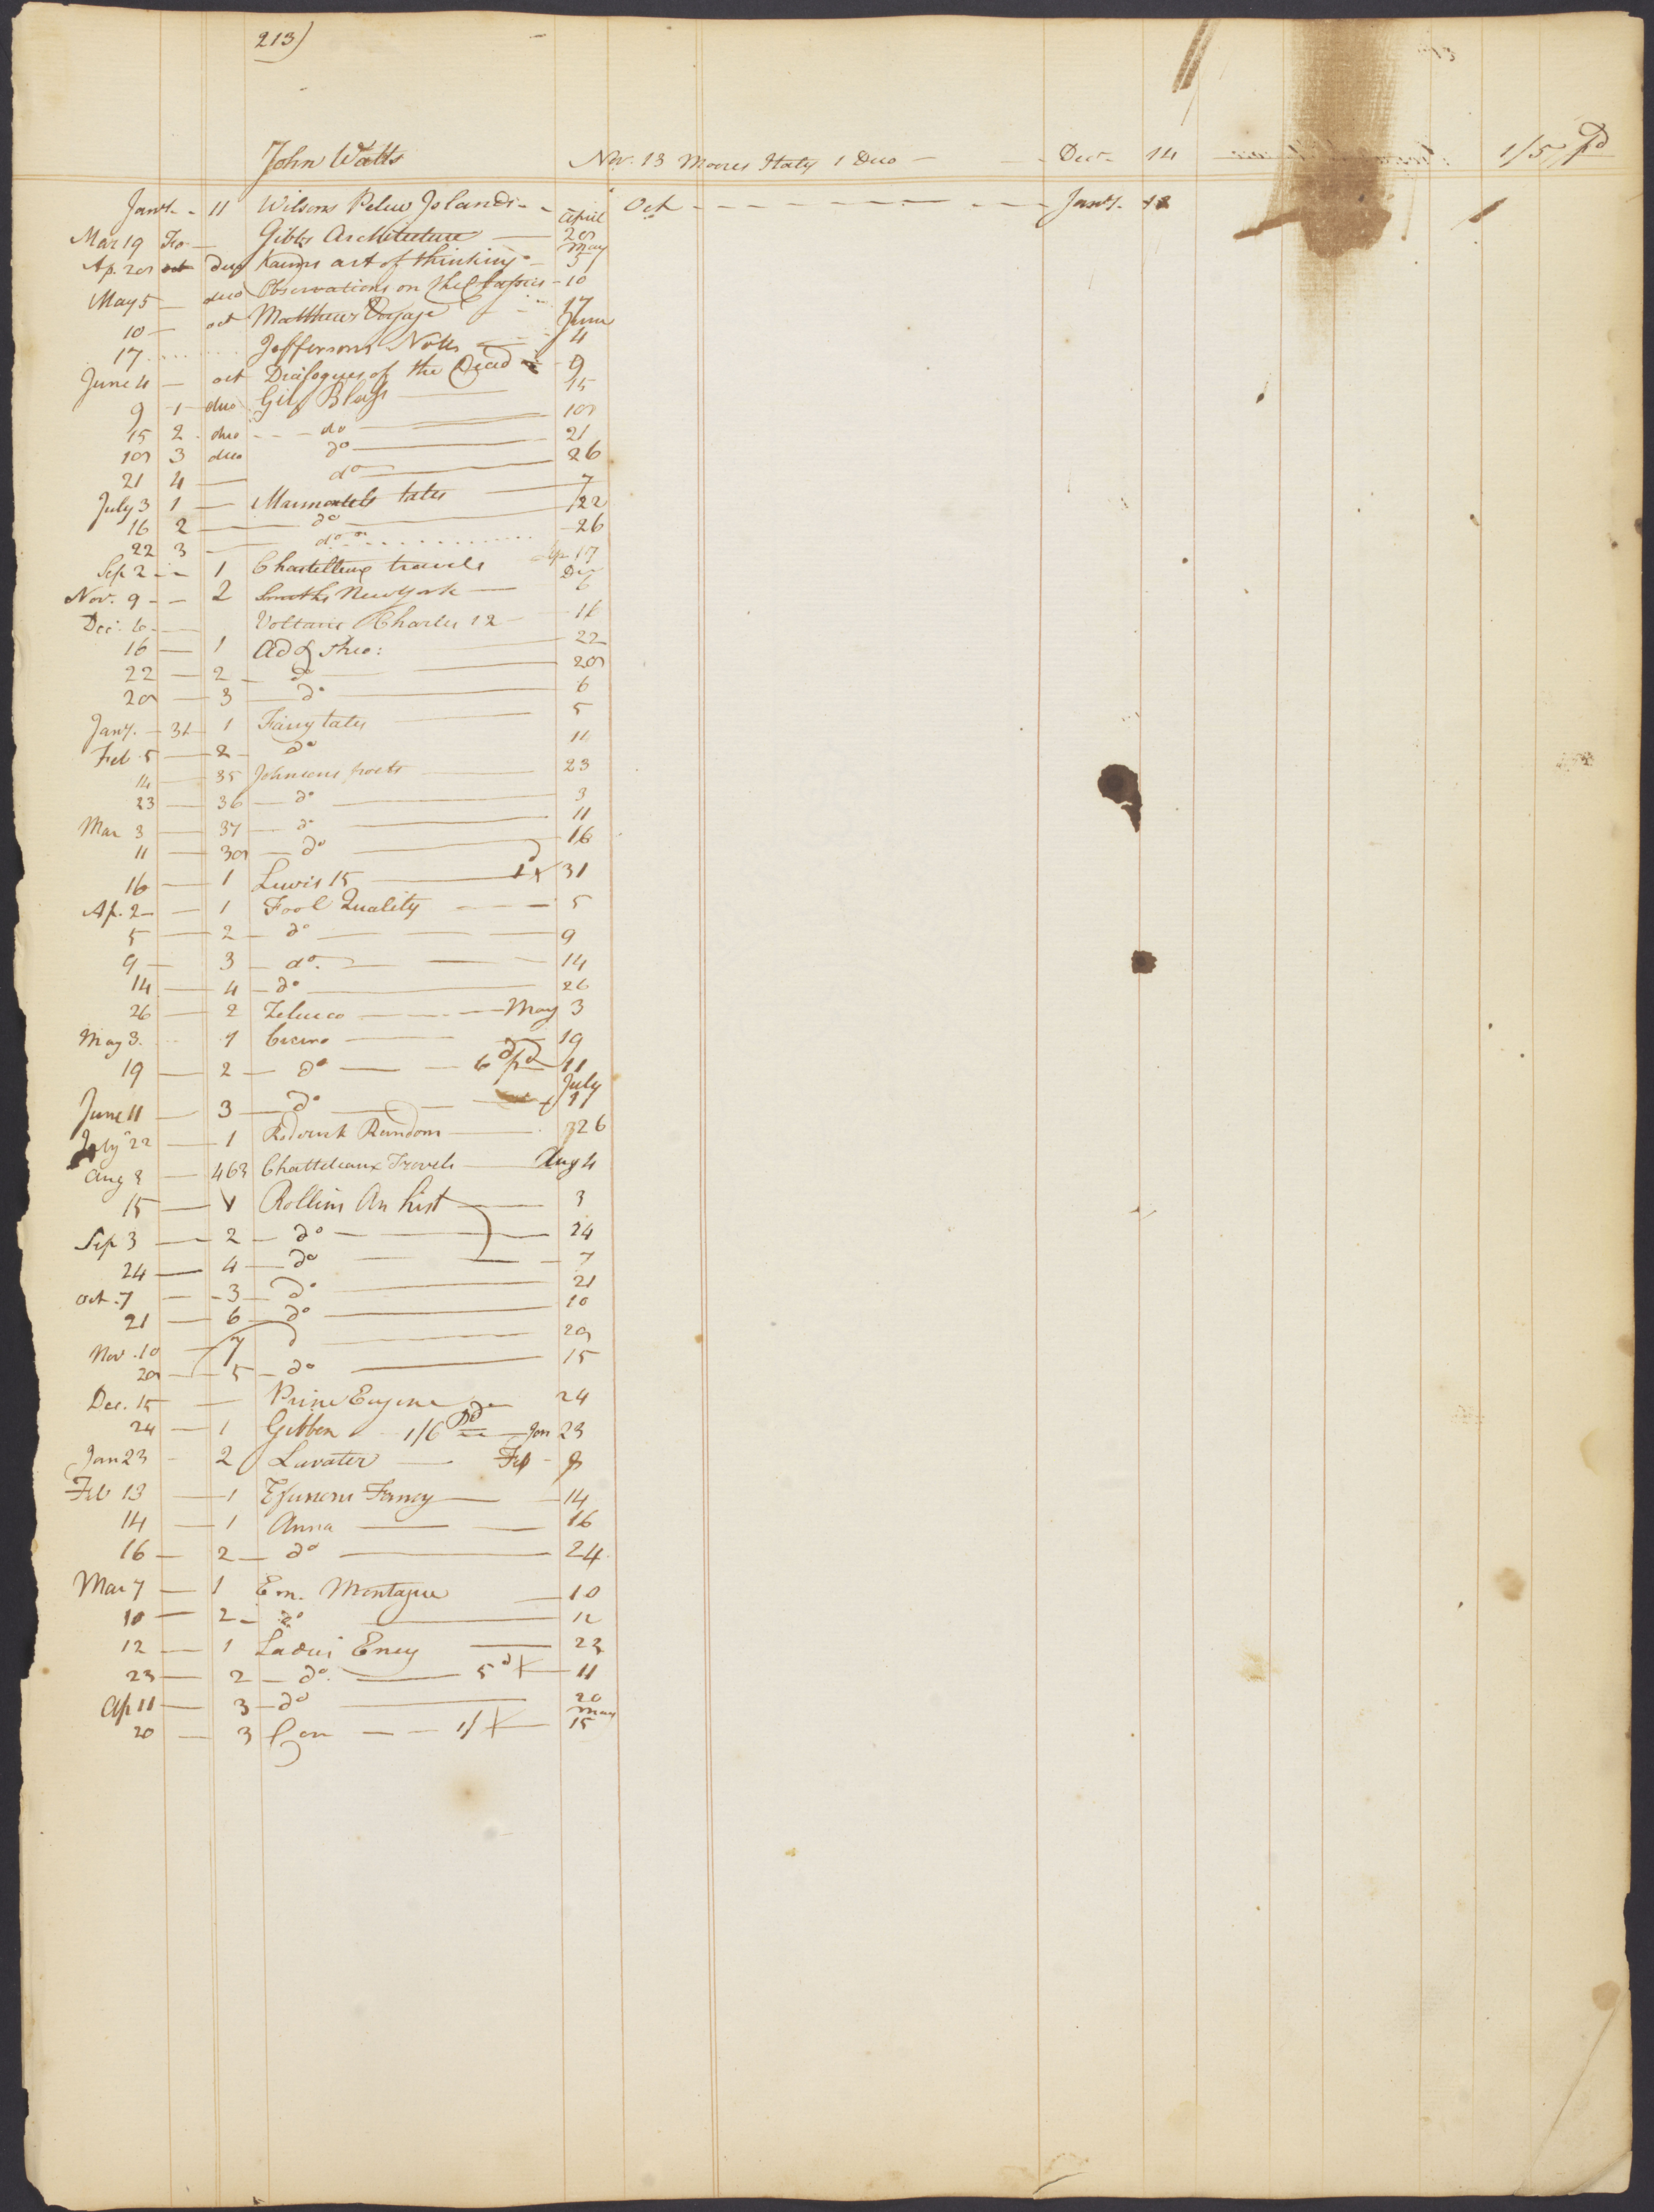 213)
John Watts Nov. 13 Moores Italy 1 Duo — - Decr. 14 1/5 Pd
Jany. - 11 Wilsons Pelew Islands - - Oct - - - - Jany. 12
Mar 19 Fo — Gibbs Architecture — April 28
Ap. 28 oct duo Kaims art of thinking - May 5
May 5 — duo Observations on the Classics - 10
10 — oct Matthews Voyage - - 17
17 ...... Jeffersons Notes — June 4
June 4 — oct Dialogues of the Dead - 9
9 1 duo Gil Blass — 15
15 2 duo - - - do — 18
18 3 duo do — 21
21 4 — do — 26
July 3 1 — Marmontels tales — 7
16 2 — do — 22
22 3 — do ...... 26
Sep 2 - - 1 Chastellux travels Sep 17
Nov. 9 - - 2 Smiths New York — Dec 6
Dec. 6 - — Voltaire Charles 12 — 16
16 — 1 Ad & Theo: — 22
22 — 2 — do — 28
28 — 3 — do — 6
Jany. - 31 - 1 Fairy tales — 5
Feb 5 — 2 - do 14
14 — 35 Johnsons poets — 23
23 — 36 — do — 3
Mar 3 — 37 — do — 11
11 — 38 — do — 16
16 — 1 Lewis 15 — 31
Ap. 2 - — 1 Fool Quality - - - 5
5 — 2 — do — — — 9
9 — 3 — do. — — — 14
14 — 4 — do — 26
26 — 2 Zeluco — - - — May 3
May 3. 1 Cicero — — 19
19 — 2 — do — — 6d pd 11
June 11 — 3 — do — — July 17
July 22 — 1 Roderick Random — 26
Aug 8 — 463 Chatteleaux Travels — Aug 4
15 — 1 Rollins An hist — 3
Sep 3 — 2 — do — — 24
24 — 4 — do — — 7
Oct. 7 — - 3 — do — 21
21 — 6 — do — 10
Nov. 10 — 7 — 28
28 — 5 — do — 15
Dec. 15 — Prince Eugene — 24
24 — 1 Gibbon - 1/6 Pd — Jan 23
Jan 23 - 2 Lavater — Feb - 8
Feb 13 — 1 Fancy — — 14
14 — 1 Anna — — 16
16 — 2 — do — 24
Mar 7 — 1 Em. Montague — 10
10 — 2 - do — 12
12 — 1 Ladies Ency — 23
23 — 2 — do. — 5d — 11
Ap 11 — 3 — do — 20
20 — 3 — - — 1/ — May 15